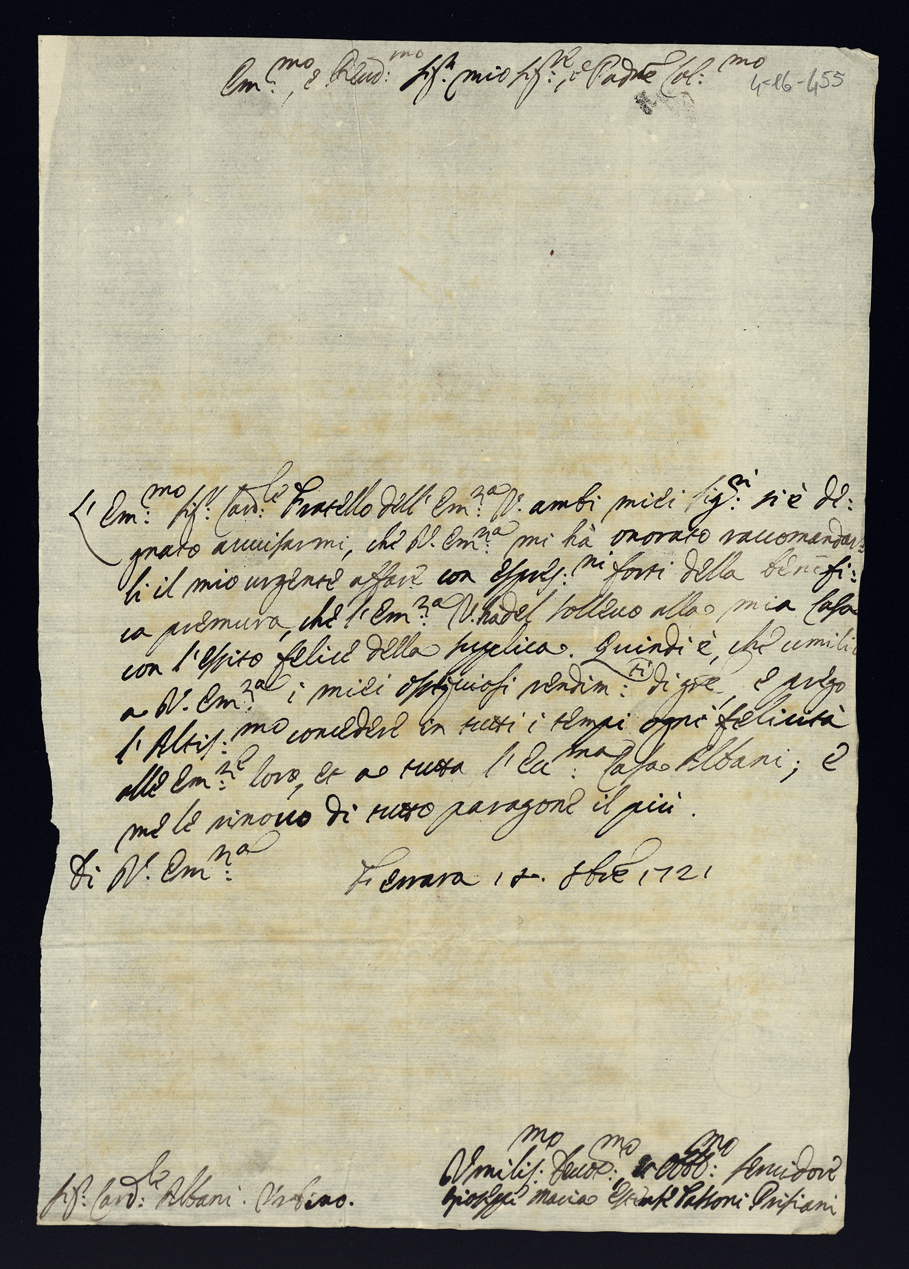 Em:mo, e Reud:mo Sig:r mio Sig:re, e Padre Col:mo
4-16-455
L'Em:mo Sig:r Card:le Fratello dell'Em:za V: ambi miei Sig:ri si è de:
gnato auuisarmi, che V: Em:za mi hà onorato raccomandar
li il mio urgente affare con espres:ni forti della benefi:
ca premura, che l'Em:za V: hà del solleuo alla mia Casa
con l'esito felice della supplica. Quindi è, che umilio
a V: Em:za i miei ossequiosi rendim:ti di gre, e prego
l'Altis:mo concedere in tutti i tempi ogni felicità
alle Em:ze loro, et a tutta l'Ecc:ma Casa Albani; e
me le rinouo di tutto paragone il più.
Di V: Em:za Ferrara 8bre 1721
Umilis:mo Deuot:mo et Obbl:mo Seruidore
Sig:r Card:le Albani. Urbino.
Gioseppe Maria Estense Tassoni Prisiani